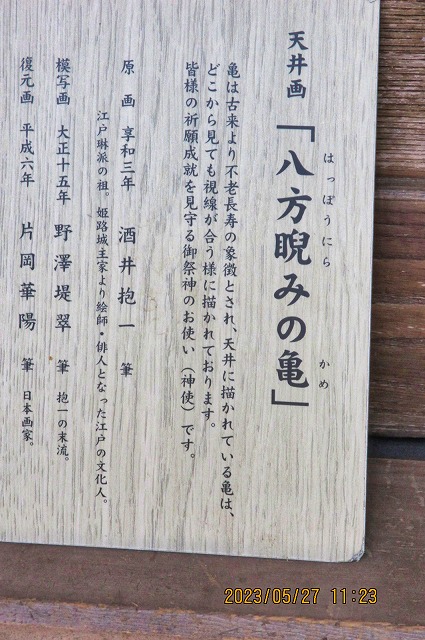 天井画
「八方睨みの亀」
はっぽうにら
かめ
亀は古来より不老長寿の象徴とされ、天井に描かれている亀は、
どこから見ても視線が合う様に描かれております。
皆様の祈願成就を見守る御祭神のお使い（神使）です。
原　画　享和三年　酒井抱一　筆
江戸琳派の祖。姫路城主家より絵師・俳人となった江戸の文化人。
模写画　大正十五年　野澤堤翠　筆　抱一の末流。
復元画　平成六年　片岡華陽　筆　日本画家。
2023/05/27 11:23